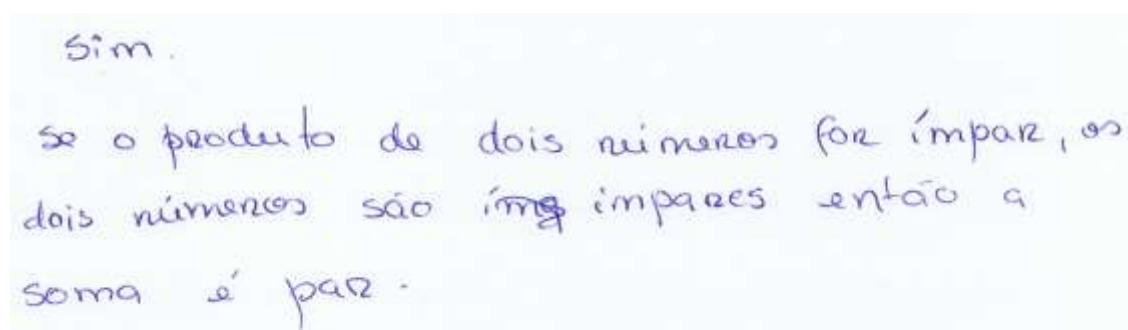 Sim.
se o produto de dois números for ímpar, os
dois números são impares então a
soma é par.